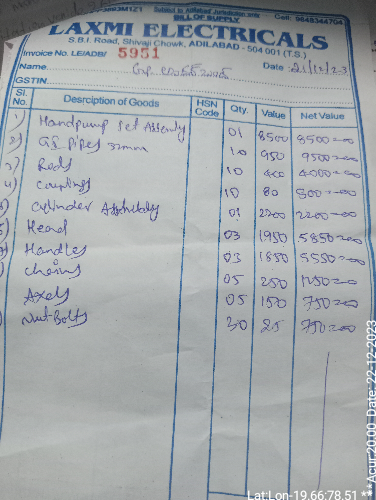 Subject to Adilabad Jurisdiction only
BILL OF SUPPLY
Cell: 9848344704
LAXMI ELECTRICALS
S.B.I. Road, Shivaji Chowk, ADILABAD - 504 001 (T.S.)
Invoice No. LE/ADB/ 5951
Date
Name
GSTIN
Sl. No. Desrciption of Goods HSN Code Qty. Value Net Value
1) Handpump Set Assembly 01 8500 8500=00
2) GI Pipes 32mm 10 950 9500=00
3) Rods 10 400 4000=00
4) Couplings 10 80 800=00
Cylinder 01 2200 2200=00
Head 03 1950 5850=00
Handles 03 1850 5550=00
Chains 05 250 1250=00
Axels 05 150 750=00
Nut Bolts 30 25 750=00
Lat:Lon-19.66:78.51 *** Acur:20.00 Date: 22-12-2023